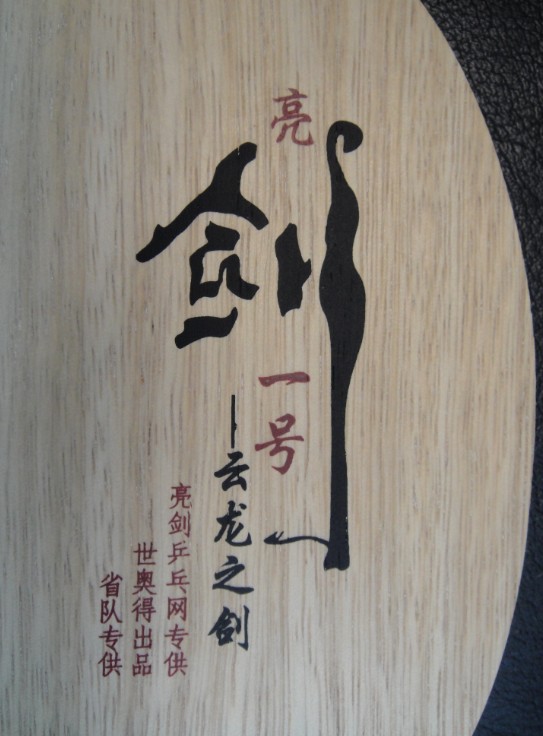 亮剑一号
—云龙之剑
亮剑乒乓网专供
世奥得出品
省队专供